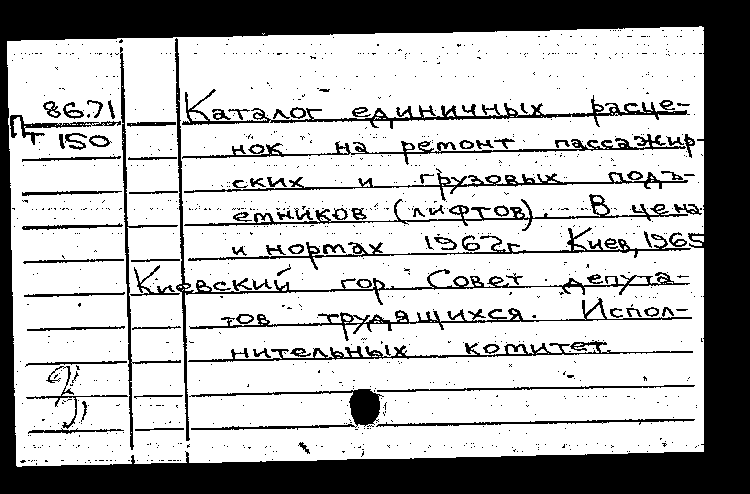 86.71
П
Т 150
Каталог единичных расце-
нок на ремонт пассажир-
ских и грузовых подъ-
емников (лифтов). В цена
и нормах 1962г. Киев, 1965
Киевский гор. Совет депута-
тов трудящихся. Испол-
нительных комитет.